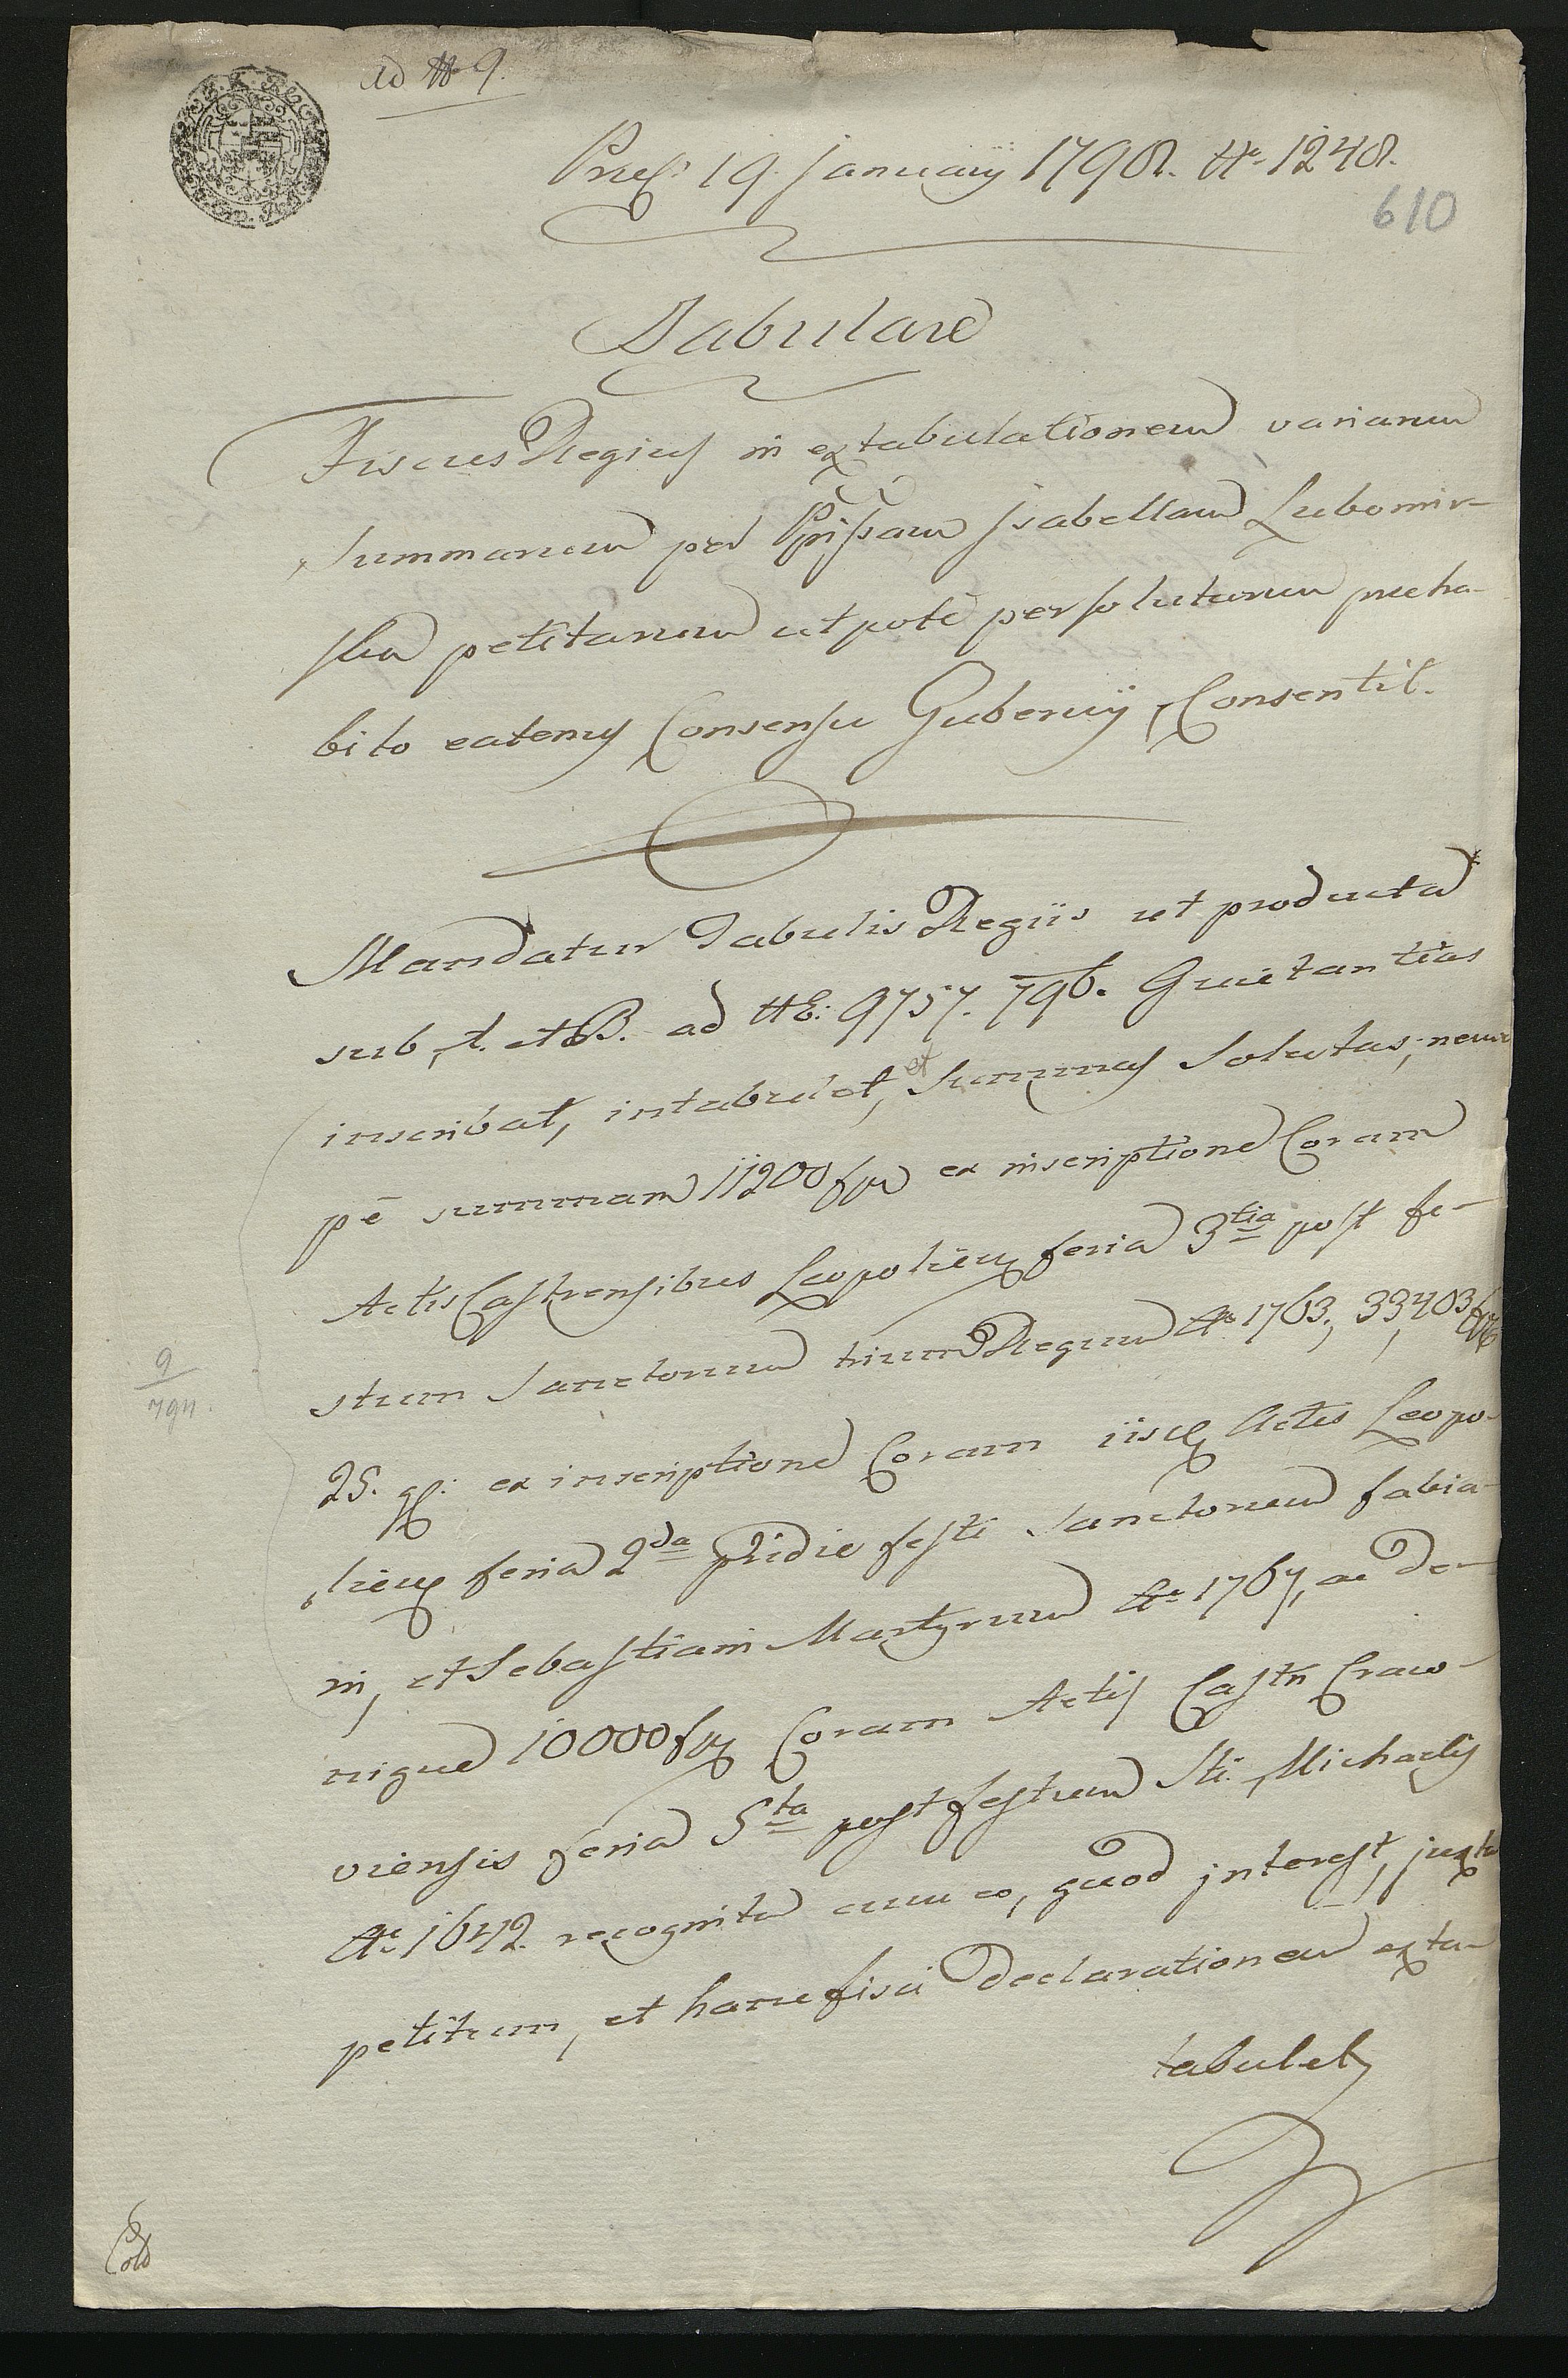 ad N 9.
Præs: 19. January 1798. N. 1248.
610
Tabulare
Fiscus Regius in extabulationem variarum
Summarum per Ppissam Isabellam Lubomir-
ska petitarum utpote persolutarum præha-
bito eatenus Consensu Gubernij Consentit.
Mandatur Tabulis Regiis ut producta
sub A. et B. ad NE: 9757. 796. Quietantias
inscribat, intabulet, et Summas Solutas; nem-
pe summam 11200 fpl ex inscriptione Coram
Actis Castrensibus Leopolien feria 3tia post fe-
stum Sanctorum trium Regum Ao 1763, 33,403 fpl
25. gl: ex inscriptione Coram iisq Actis Leopo-
lien feria 2da pridie festi Sanctorum Fabia-
ni, et Sebastiani Martyrum Ao 1767, ac de-
nique 10000 fpl Coram Actis Castr Craco-
viensis feria 5ta post festum Sti. Michaelis
Ao 1642. recognita cum eo, quod interest, juxta
petitum, et hanc fisci Declarationem exta-
tabulet
9
794.